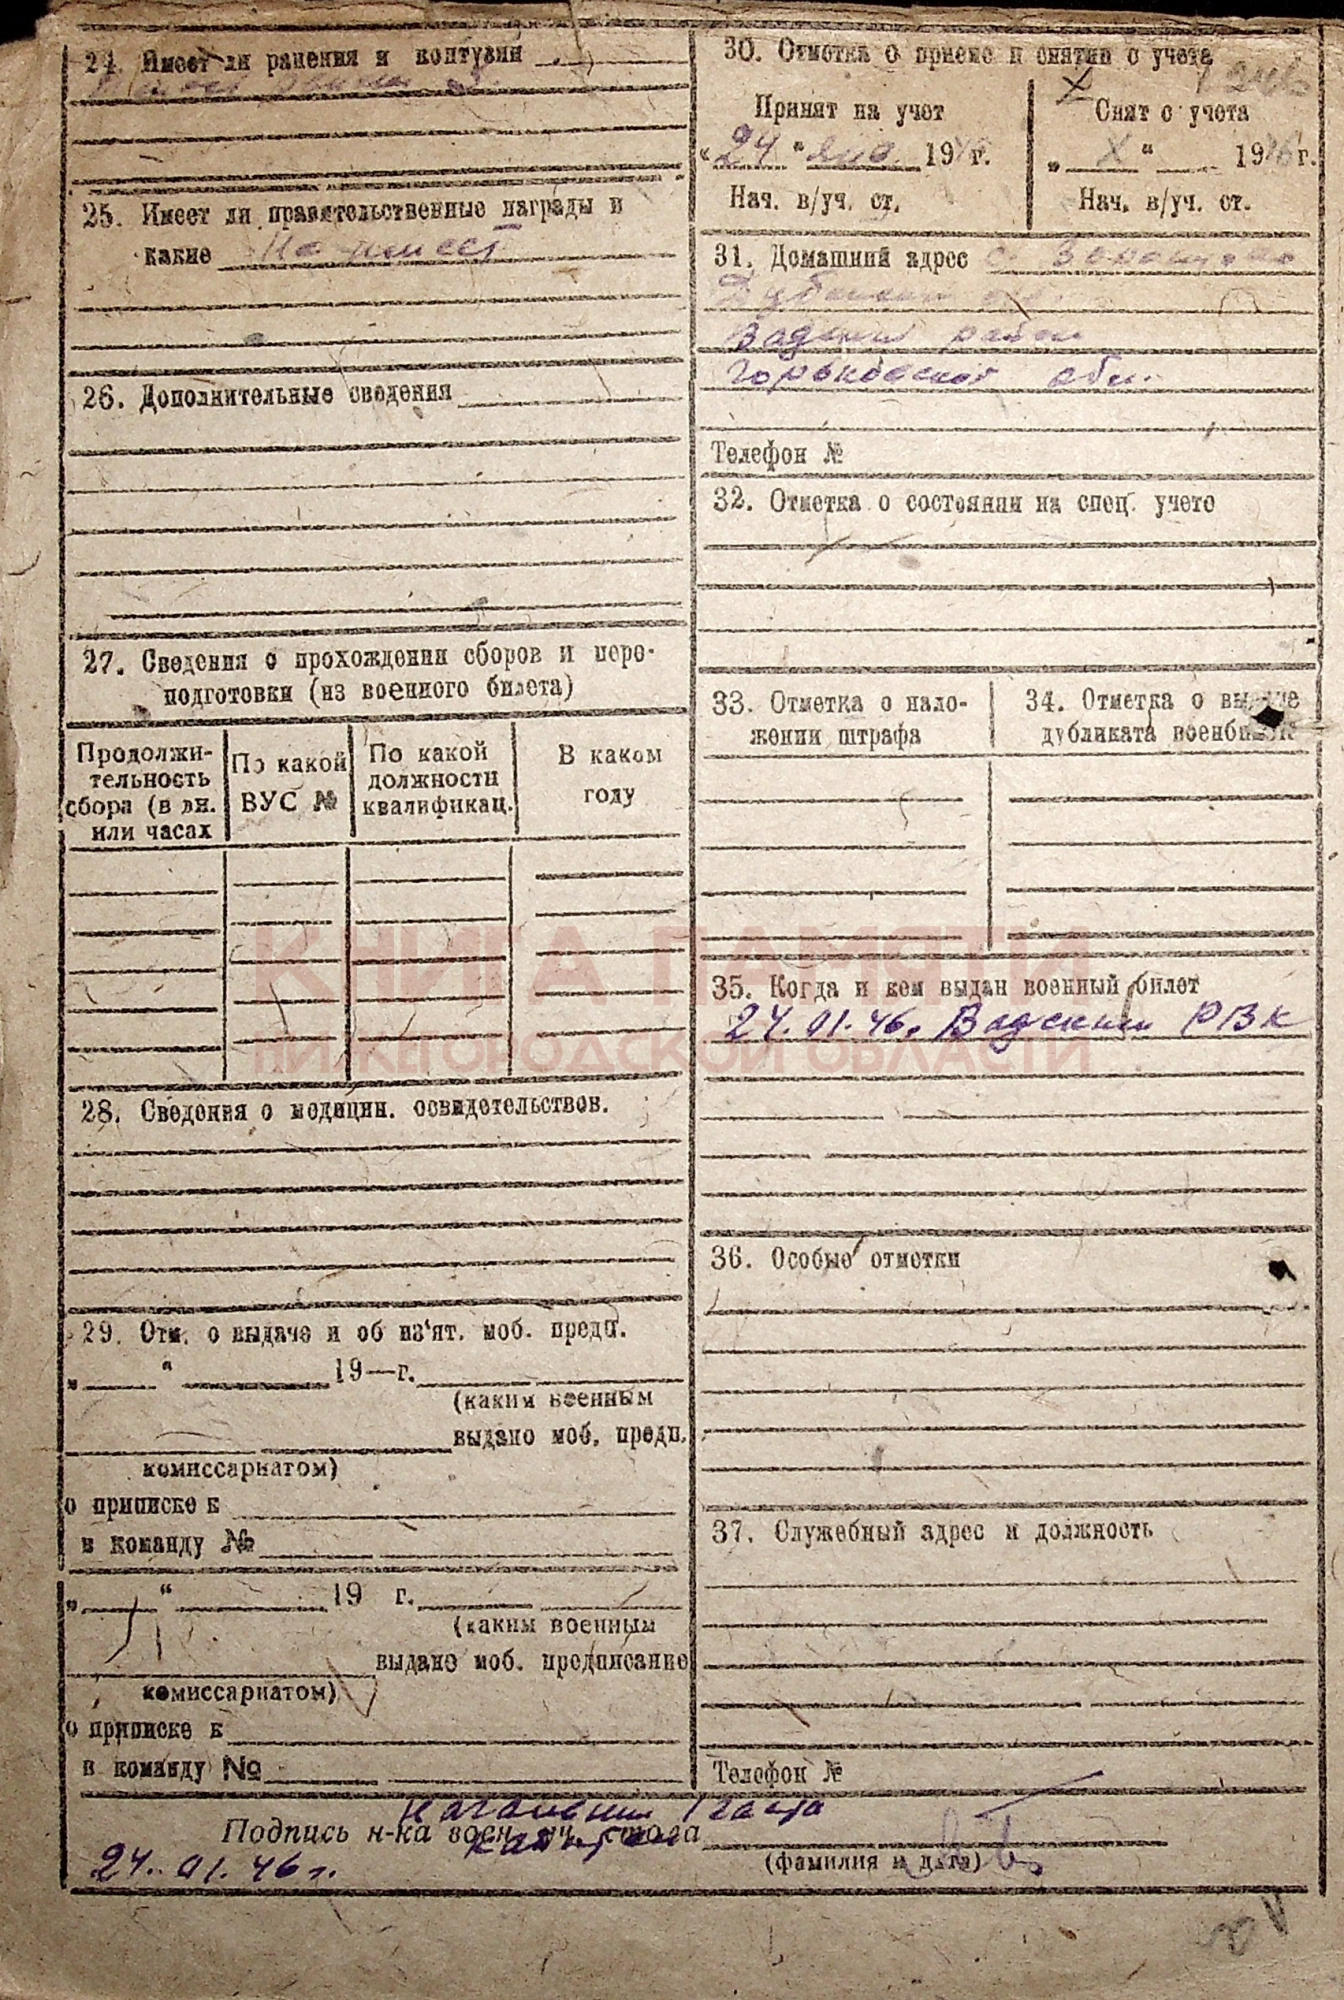 24. Имеет ли ранения и контузии
25. Имеет ли правительственные награды и
какие Не имеет
26. Дополнительные сведения
27. Сведения о прохождении сборов и пере-
подготовки (из военного билета)
Продолжи-
тельность
сбора (в дн.
или часах
По какой
ВУС №
По какой
должности
квалификац.
В каком
году
28. Сведения о медицин. освидетельствов.
29. Отм. о выдаче и об из'ят. моб. предп.
„ “ 19—г.
(каким военным
выдано моб. предп.
комиссариатом)
о приписке к
в команду №
„ “ 19 г.
(каким военным
выдано моб. предписание
комиссариатом)
о приписке к
в команду №
30. Отметка о приеме и снятии с учета
Принят на учет
«24 “ янв. 1946г.
Нач. в/уч. ст.
Снят с учета
„ X “ 1946г.
Нач. в/уч. ст.
31. Домашний адрес с.
Вадский район
Горьковской обл.
Телефон №
32. Отметка о состоянии на спец. учете
33. Отметка о нало-
жении штрафа
34. Отметка о выдаче
дубликата военбилета
35. Когда и кем выдан военный билет
24.01.46. Вадским РВК
36. Особые отметки
37. Служебный адрес и должность
Телефон №
Начальник 1 части
Подпись н-ка воен. уч. стола
капитан
(фамилия и дата)
24.01.46 г.
КНИГА ПАМЯТИ
НИЖЕГОРОДСКОЙ ОБЛАСТИ